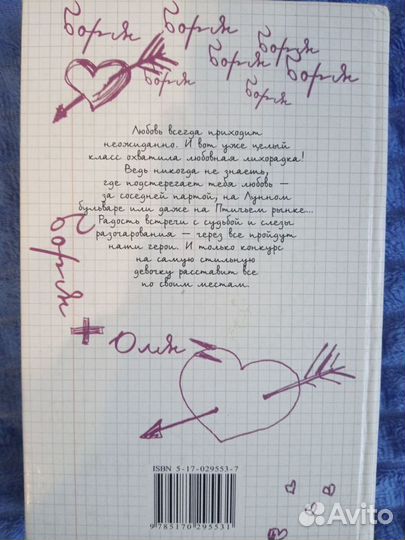 Боря
Боря
Боря
Боря
Боря
Боря
Боря
Любовь всегда приходит
неожиданно. И вот уже целый
класс охватила любовная лихорадка!
Ведь никогда не знаешь,
где подстерегает тебя любовь —
за соседней партой, на Лунном
бульваре или даже на Птичьем рынке...
Радость встречи с судьбой и слезы
разочарования — через все пройдут
наши герои. И только конкурс
на самую стильную
девочку расставит все
по своим местам.
Боря
+ Оля
ISBN 5-17-029553-7
9 785170 295531
Avito